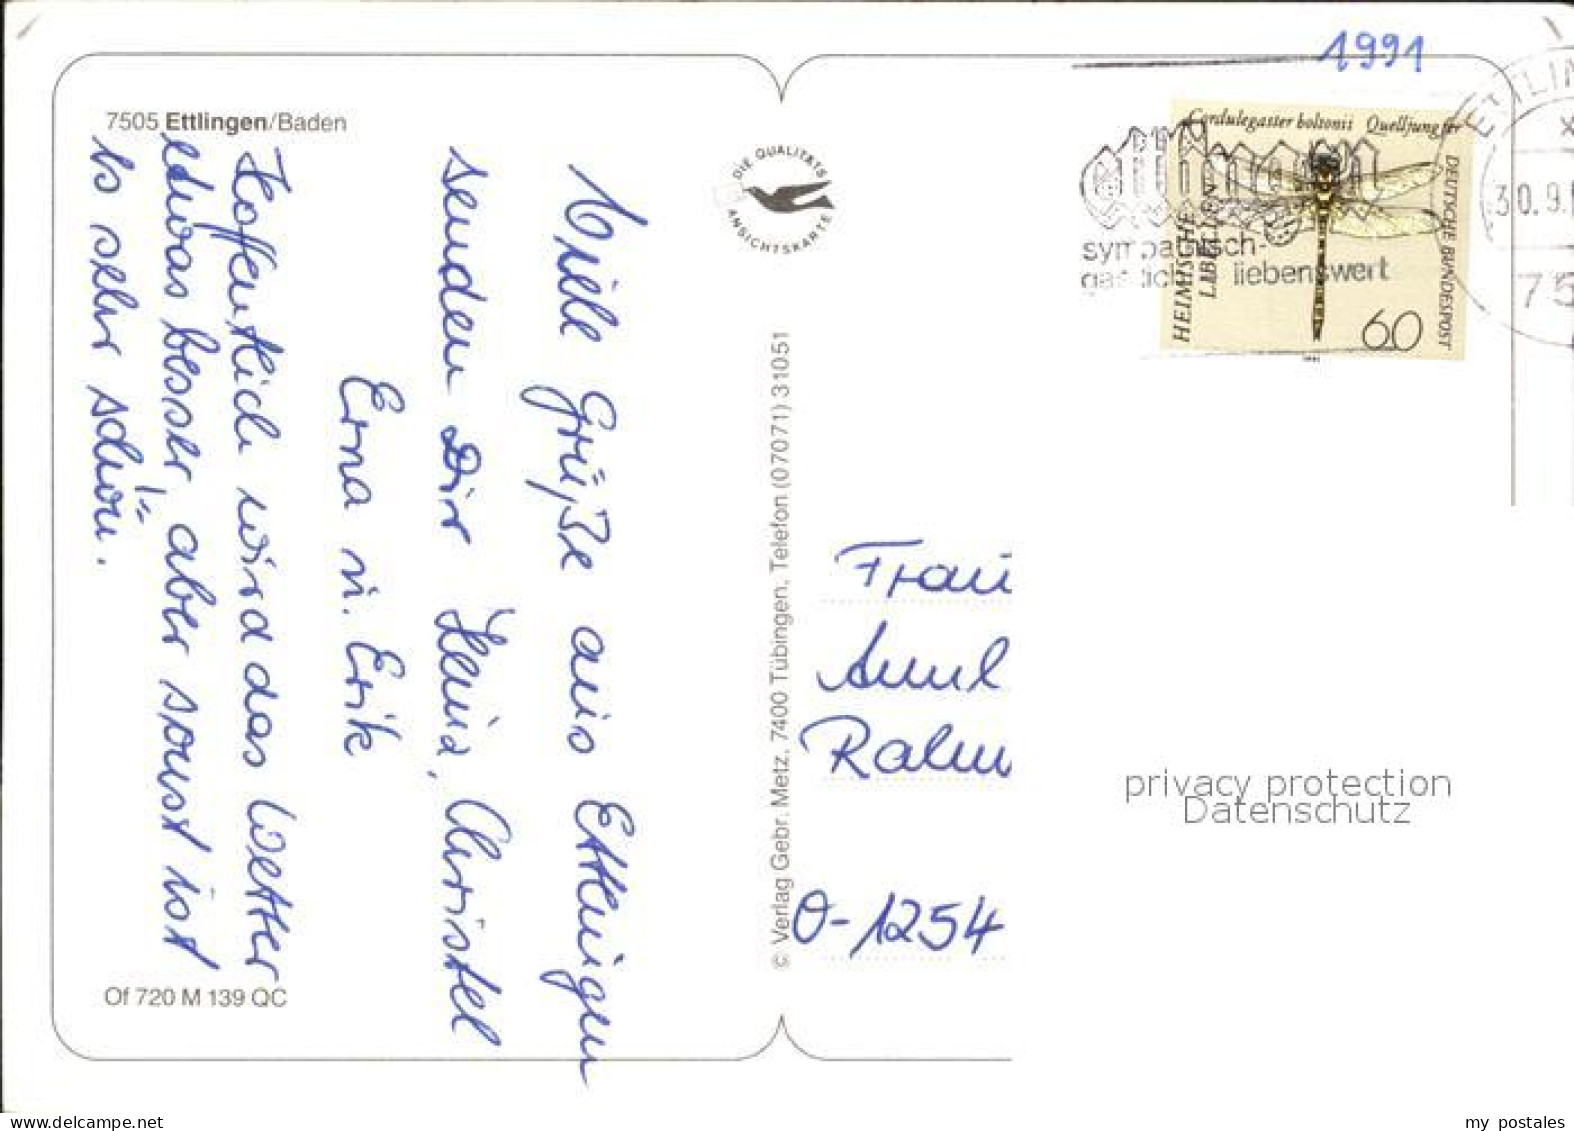 1991
7505 Ettlingen/Baden
DIE QUALITÄTS
ANSICHTSKARTE
Cordulegaster boltonii Quelljungfer
HEIMISCHE
LIBELLEN
DEUTSCHE BUNDESPOST
60
ETTLIN
30.9.
75
sympathisch-
gastlich- liebenswert
Viele Grüße aus Ettlingen
senden Dir Heinz, Christel
Erna u. Erik
Hoffentlich wird das Wetter
etwas besser, aber sonst ist
es sehr schön.
© Verlag Gebr. Metz, 7400 Tübingen, Telefon (07071) 31051
Frau
O-1254
privacy protection
Datenschutz
Of 720 M 139 QC
my postales